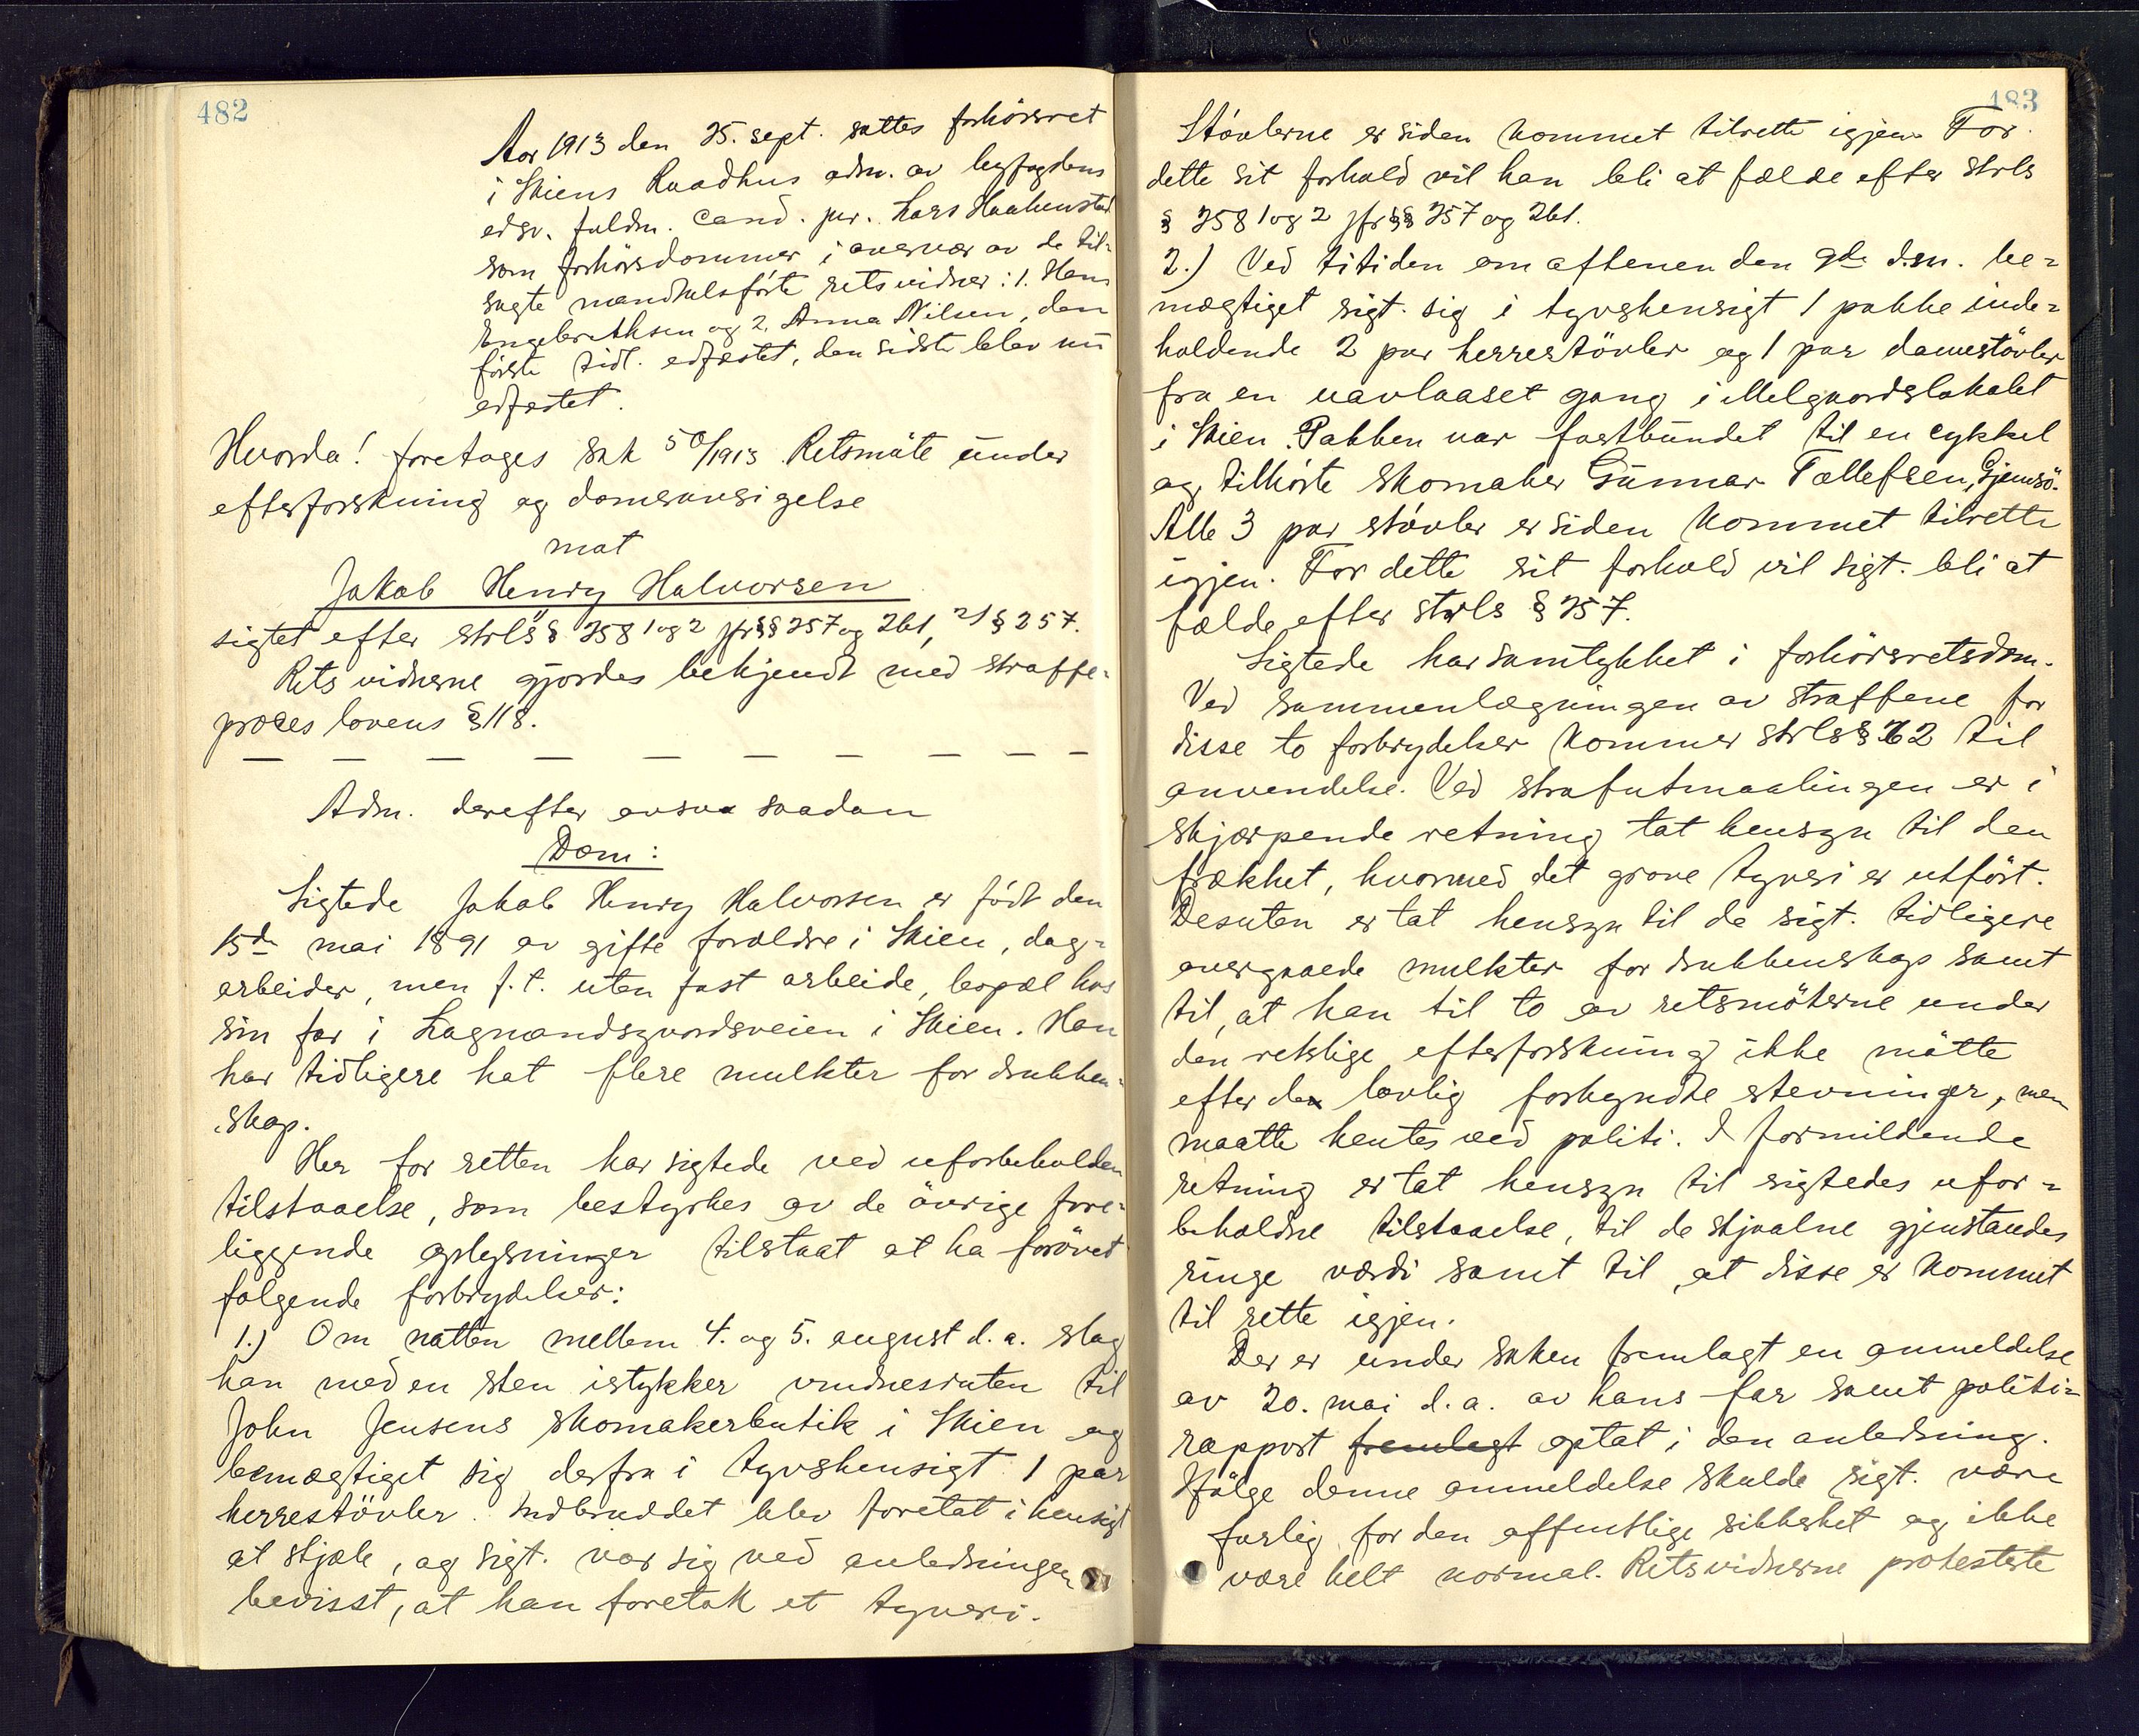 482
Aar 1913 den 25. sept. sattes forhörsret
i Skiens Raadhus adm. av byfogdens
edsv. fuldm. cand. jur. Lars Haakenstad
som forhörsdommer i overvær av de til-
sagte mandtalsförte retsvidner: 1. Hans
Engebrethsen og 2. Anna Nilsen, den
förste tidl. edfæstet, den sidste blev nu
edfæstet.
Hvorda! foretages sak 50/1913 Retsmöte under
efterforskning og domsavsigelse
mot
Jakob Henry Halvorsen
sigtet efter strls § 258 1 og 2 jfr §§ 257 og 261, 2) § 257.
Retsvidnerne gjordes bekjendt med straffe-
proceslovens § 118.
— — — — — — — — — —
Adm. derefter avsa saadan
Dom:
Sigtede Jakob Henry Halvorsen er födt den
15de mai 1891 av gifte forældre i Skien, dag-
arbeider, men f. t. uten fast arbeide, bopæl hos
sin far i Lagmandsgaardsveien i Skien. Han
har tidligere hat flere mulkter for drukken-
skap.
Her for retten har sigtede ved uforbeholden
tilstaaelse, som bestyrkes av de övrige fore-
liggende oplysninger tilstaat at ha forövet
følgende forbrydelser:
1.) Om natten mellem 4. og 5. august d. a. slog
han med en sten istykker vinduesruten til
John Jensens skomakerbutik i Skien og
bemægtiget sig derfra i tyvshensigt 1 par
herrestövler. Indbruddet blev foretat i hensigt
at stjæle, og sigt. var sig ved anledningen
bevisst, at han foretok et tyveri.
483
Stövlerne er siden kommet tilrette igjen. For
dette sit forhold vil han bli at fælde efter strls
§ 258 1 og 2 jfr §§ 257 og 261.
2.) Ved titiden om aftenen den 9de d.m. be-
mægtiget sigt. sig i tyvshensigt 1 pakke inde-
holdende 2 par herrestövler og 1 par damestövler
fra en uavlaaset gang i Melgaardslokalet
i Skien. Pakken var fastbundet til en cykkel
og tilhörte skomaker Gunnar Tollefsen, Gjemsö.
Alle 3 par stövler er siden kommet tilrette
igjen. For dette sit forhold vil sigt. bli at
fælde efter strls § 257.
Sigtede har samtykket i forhörsretsdom.
Ved sammenlægningen av straffene for
disse to forbrydelser kommer strls § 62 til
anvendelse. Ved strafutmaalingen er i
skjærpende retning tat hensyn til den
frækhet, hvormed det grove tyveri er utfört.
Desuten er tat hensyn til de sigt. tidligere
overgaaede mulkter for drukkenskap samt
til, at han til to av retsmöterne under
den retslige efterforskning ikke mötte
efter lovlig forkyndte stevninger, men
maatte hentes ved politi. I formildende
retning er tat hensyn til sigtedes ufor-
beholdne tilstaaelse, til de stjaalne gjenstandes
ringe værdi samt til, at disse er kommet
til rette igjen.
Der er under saken fremlagt en anmeldelse
av 20. mai d. a. av hans far samt politi-
rapport fremlagt optat i den anledning.
Ifölge denne anmeldelse skulde sigt. være
farlig for den offentlige sikkerhet og ikke
være helt normal. Retsvidnerne protesterte